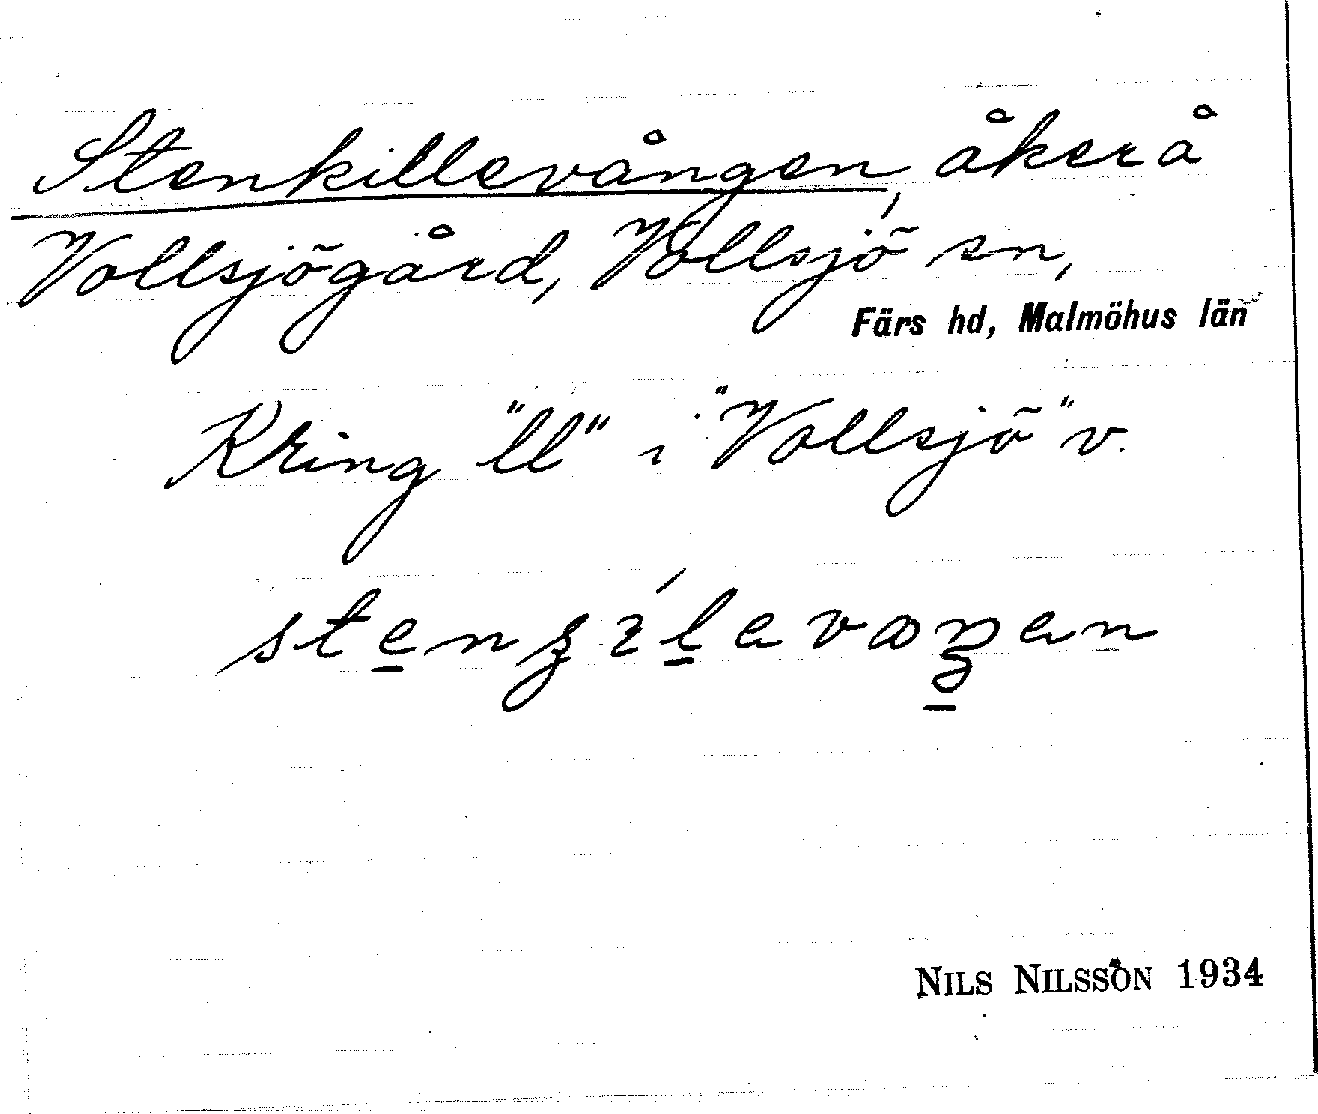 Stenkillevången, åker å
Vollsjögård, Vollsjö sn,
Färs hd, Malmöhus län
Kring "ll" i "Vollsjö" v.
NILS NILSSON 1934